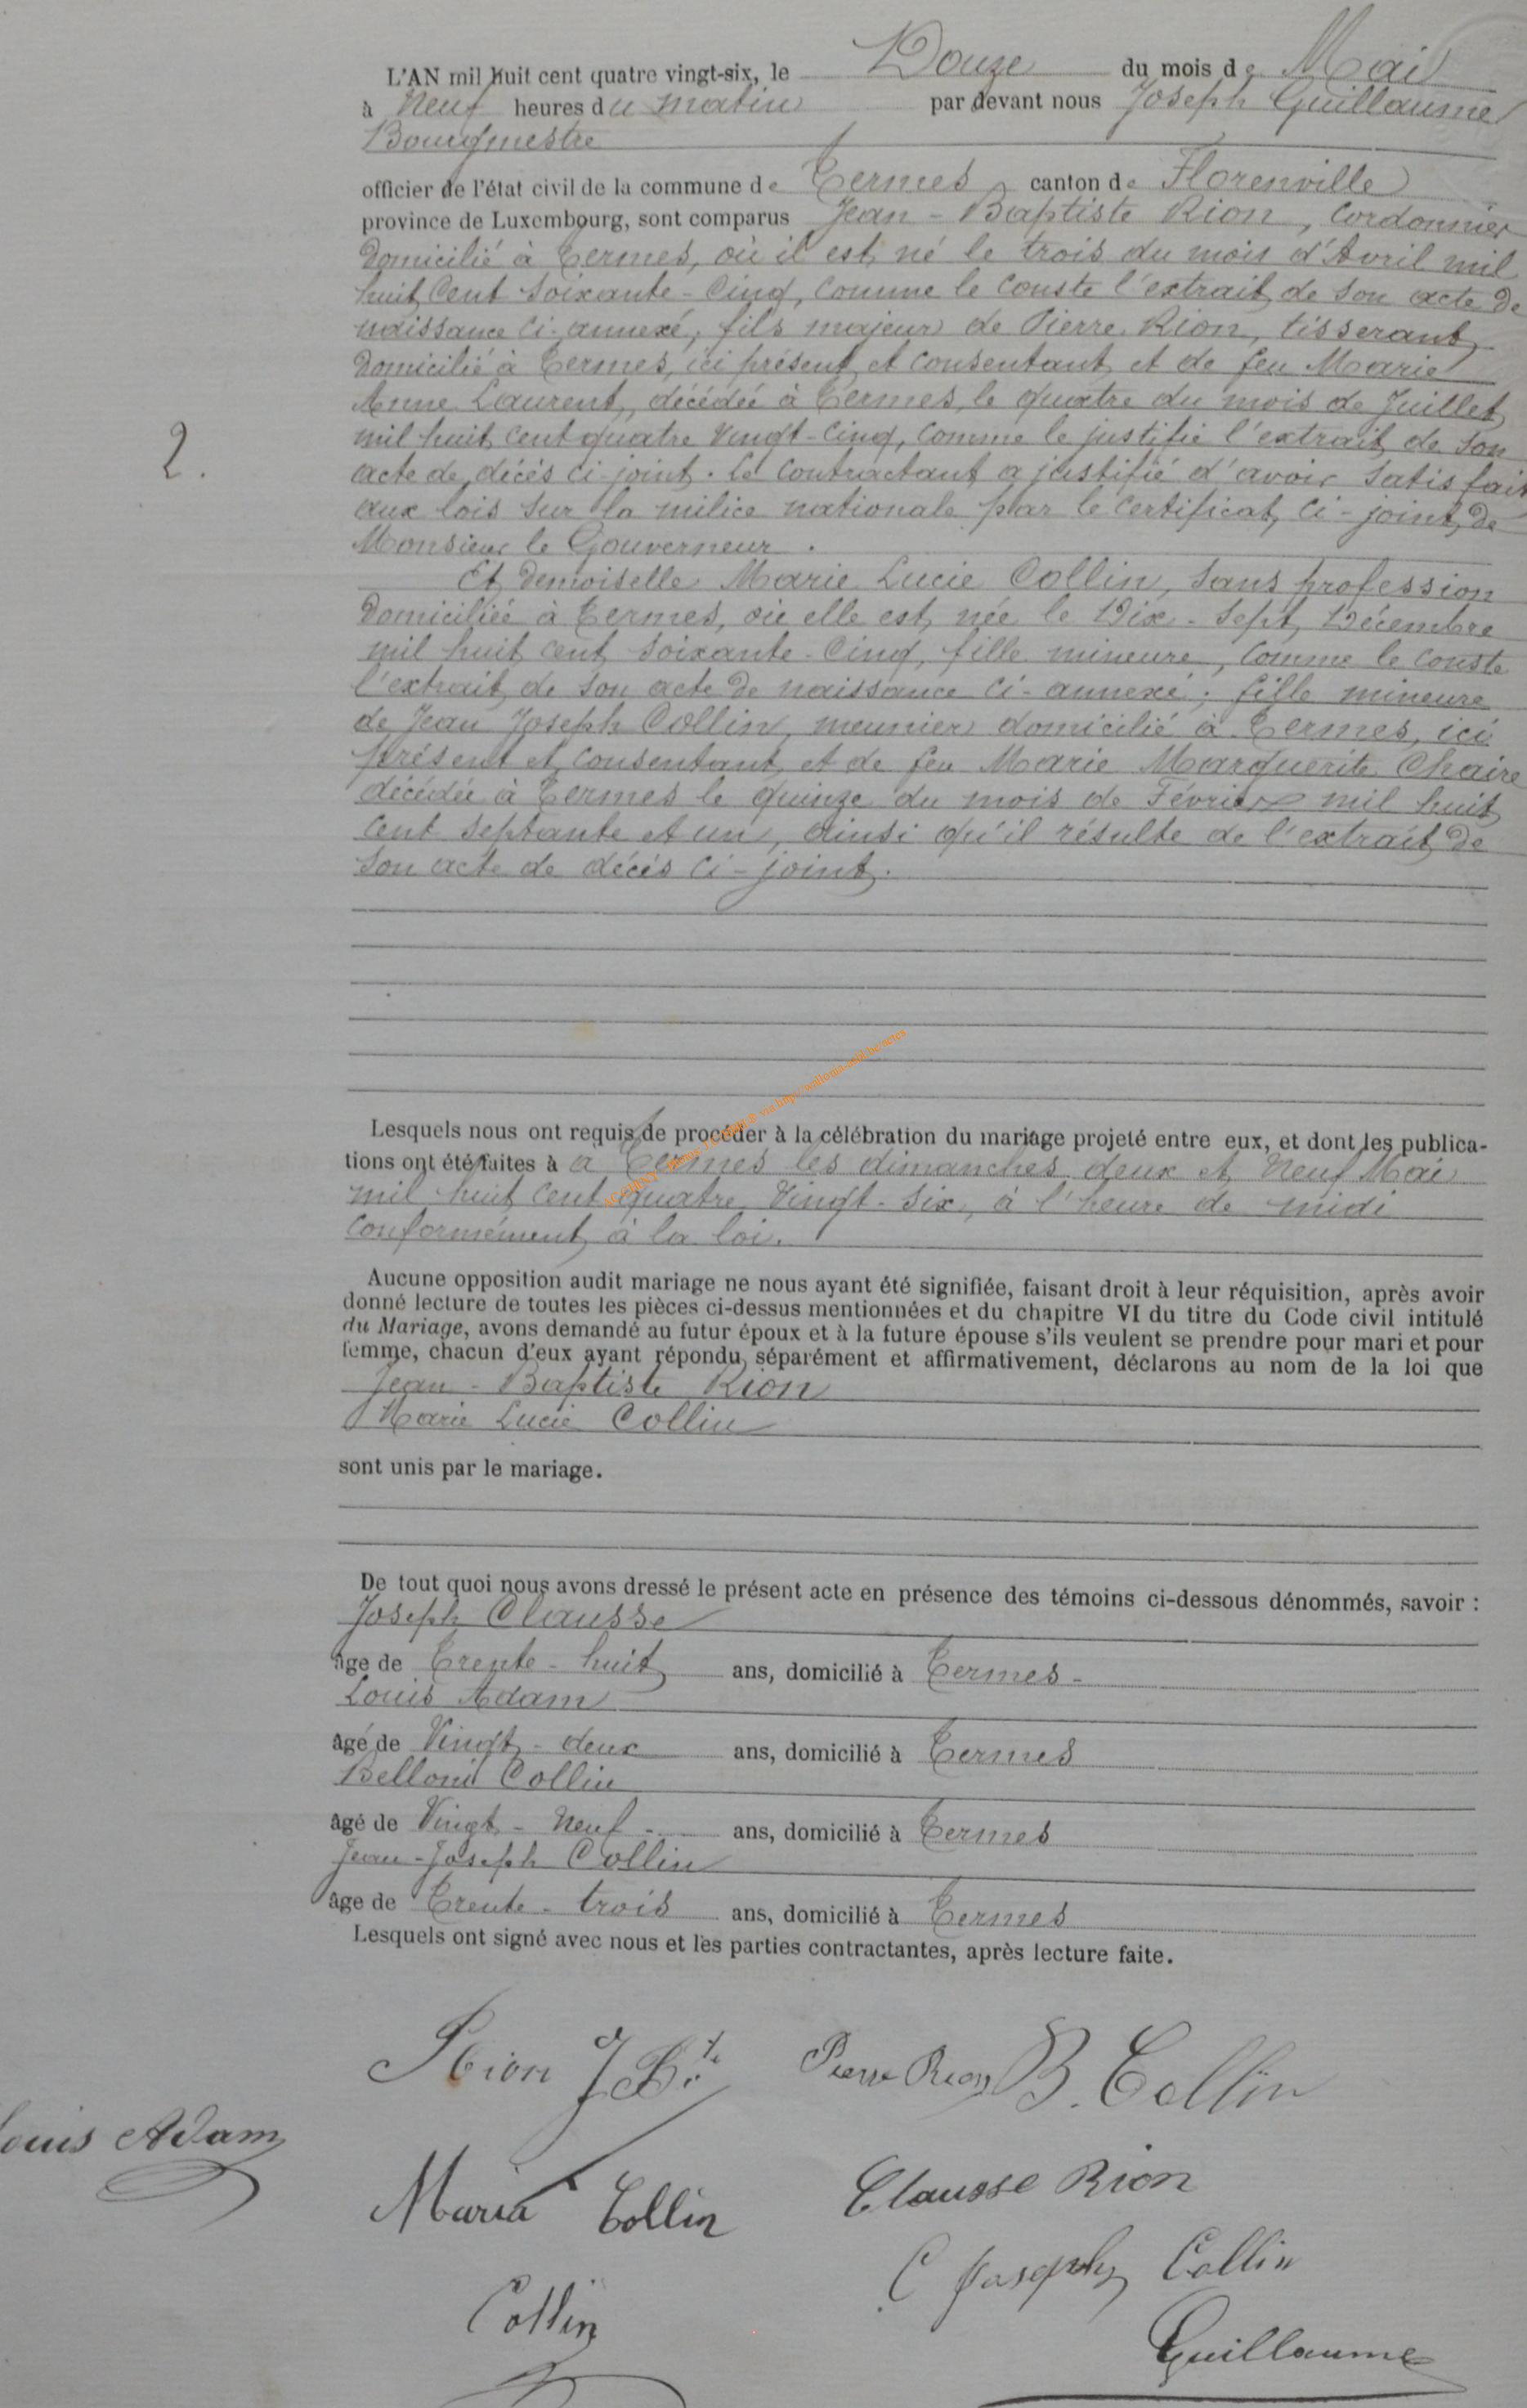 L'AN mil huit cent quatre vingt-six, le Douze du mois de Mai
à neuf heures du matin par devant nous Joseph Guillaume
Bourgmestre
officier de l'état civil de la commune de Termes, canton de Florenville
province de Luxembourg, sont comparus Jean-Baptiste Rion, Cordonnier
domicilié à Termes, où il est né le trois du mois d'Avril mil
huit Cent soixante-Cinq, Comme le Conste l'extrait de son acte de
naissance ci-annexé, fils majeur de Pierre Rion, tisserant
domicilié à Termes, ici présent et Consentant et de feu Marie
Anne Laurent, décédée à Termes, le quatre du mois de Juillet
mil huit Cent quatre Vingt-Cinq, Comme le justifie l'extrait de son
acte de décès ci-joint. Le Contractant a justifié d'avoir satisfait
aux lois sur la milice nationale par le Certificat, ci-joint, de
Monsieur le Gouverneur.
Et demoiselle Marie Lucie Collin, sans profession
domiciliée à Termes, où elle est née le Dix-sept Décembre
mil huit Cent soixante-Cinq, fille mineure, Comme le Conste
l'extrait de son acte de naissance ci-annexé; fille mineure
de Jean Joseph Collin, meunier domicilié à Termes, ici
présent et Consentant et de feu Marie Marguerite Chaire
décédée à Termes le quinze du mois de Février mil huit
Cent septante et un, ainsi qu'il résulte de l'extrait de
son acte de décès ci-joint.
Lesquels nous ont requis de procéder à la célébration du mariage projeté entre eux, et dont les publica-
tions ont été faites à a Termes les dimanches deux et Neuf Mai
mil huit Cent quatre Vingt-six, à l'heure de midi
Conformément à la loi.
Aucune opposition audit mariage ne nous ayant été signifiée, faisant droit à leur réquisition, après avoir
donné lecture de toutes les pièces ci-dessus mentionnées et du chapitre VI du titre du Code civil intitulé
du Mariage, avons demandé au futur époux et à la future épouse s'ils veulent se prendre pour mari et pour
femme, chacun d'eux ayant répondu séparément et affirmativement, déclarons au nom de la loi que
Jean-Baptiste Rion
Marie Lucie Collin
sont unis par le mariage.
De tout quoi nous avons dressé le présent acte en présence des témoins ci-dessous dénommés, savoir :
Joseph Clausse
âge de Trente-huit ans, domicilié à Termes-
Louis Adam
âgé de Vingt-deux ans, domicilié à Termes
Belloni Collin
âgé de Vingt-Neuf- ans, domicilié à Termes
Jean-Joseph Collin
âge de Trente-trois ans, domicilié à Termes
Lesquels ont signé avec nous et les parties contractantes, après lecture faite.
2.
Rion J Bte Pierre Rion B. Collin
Louis Adam
Maria Collin Clausse Rion
C Joseph Collin
Collin
Guillaume